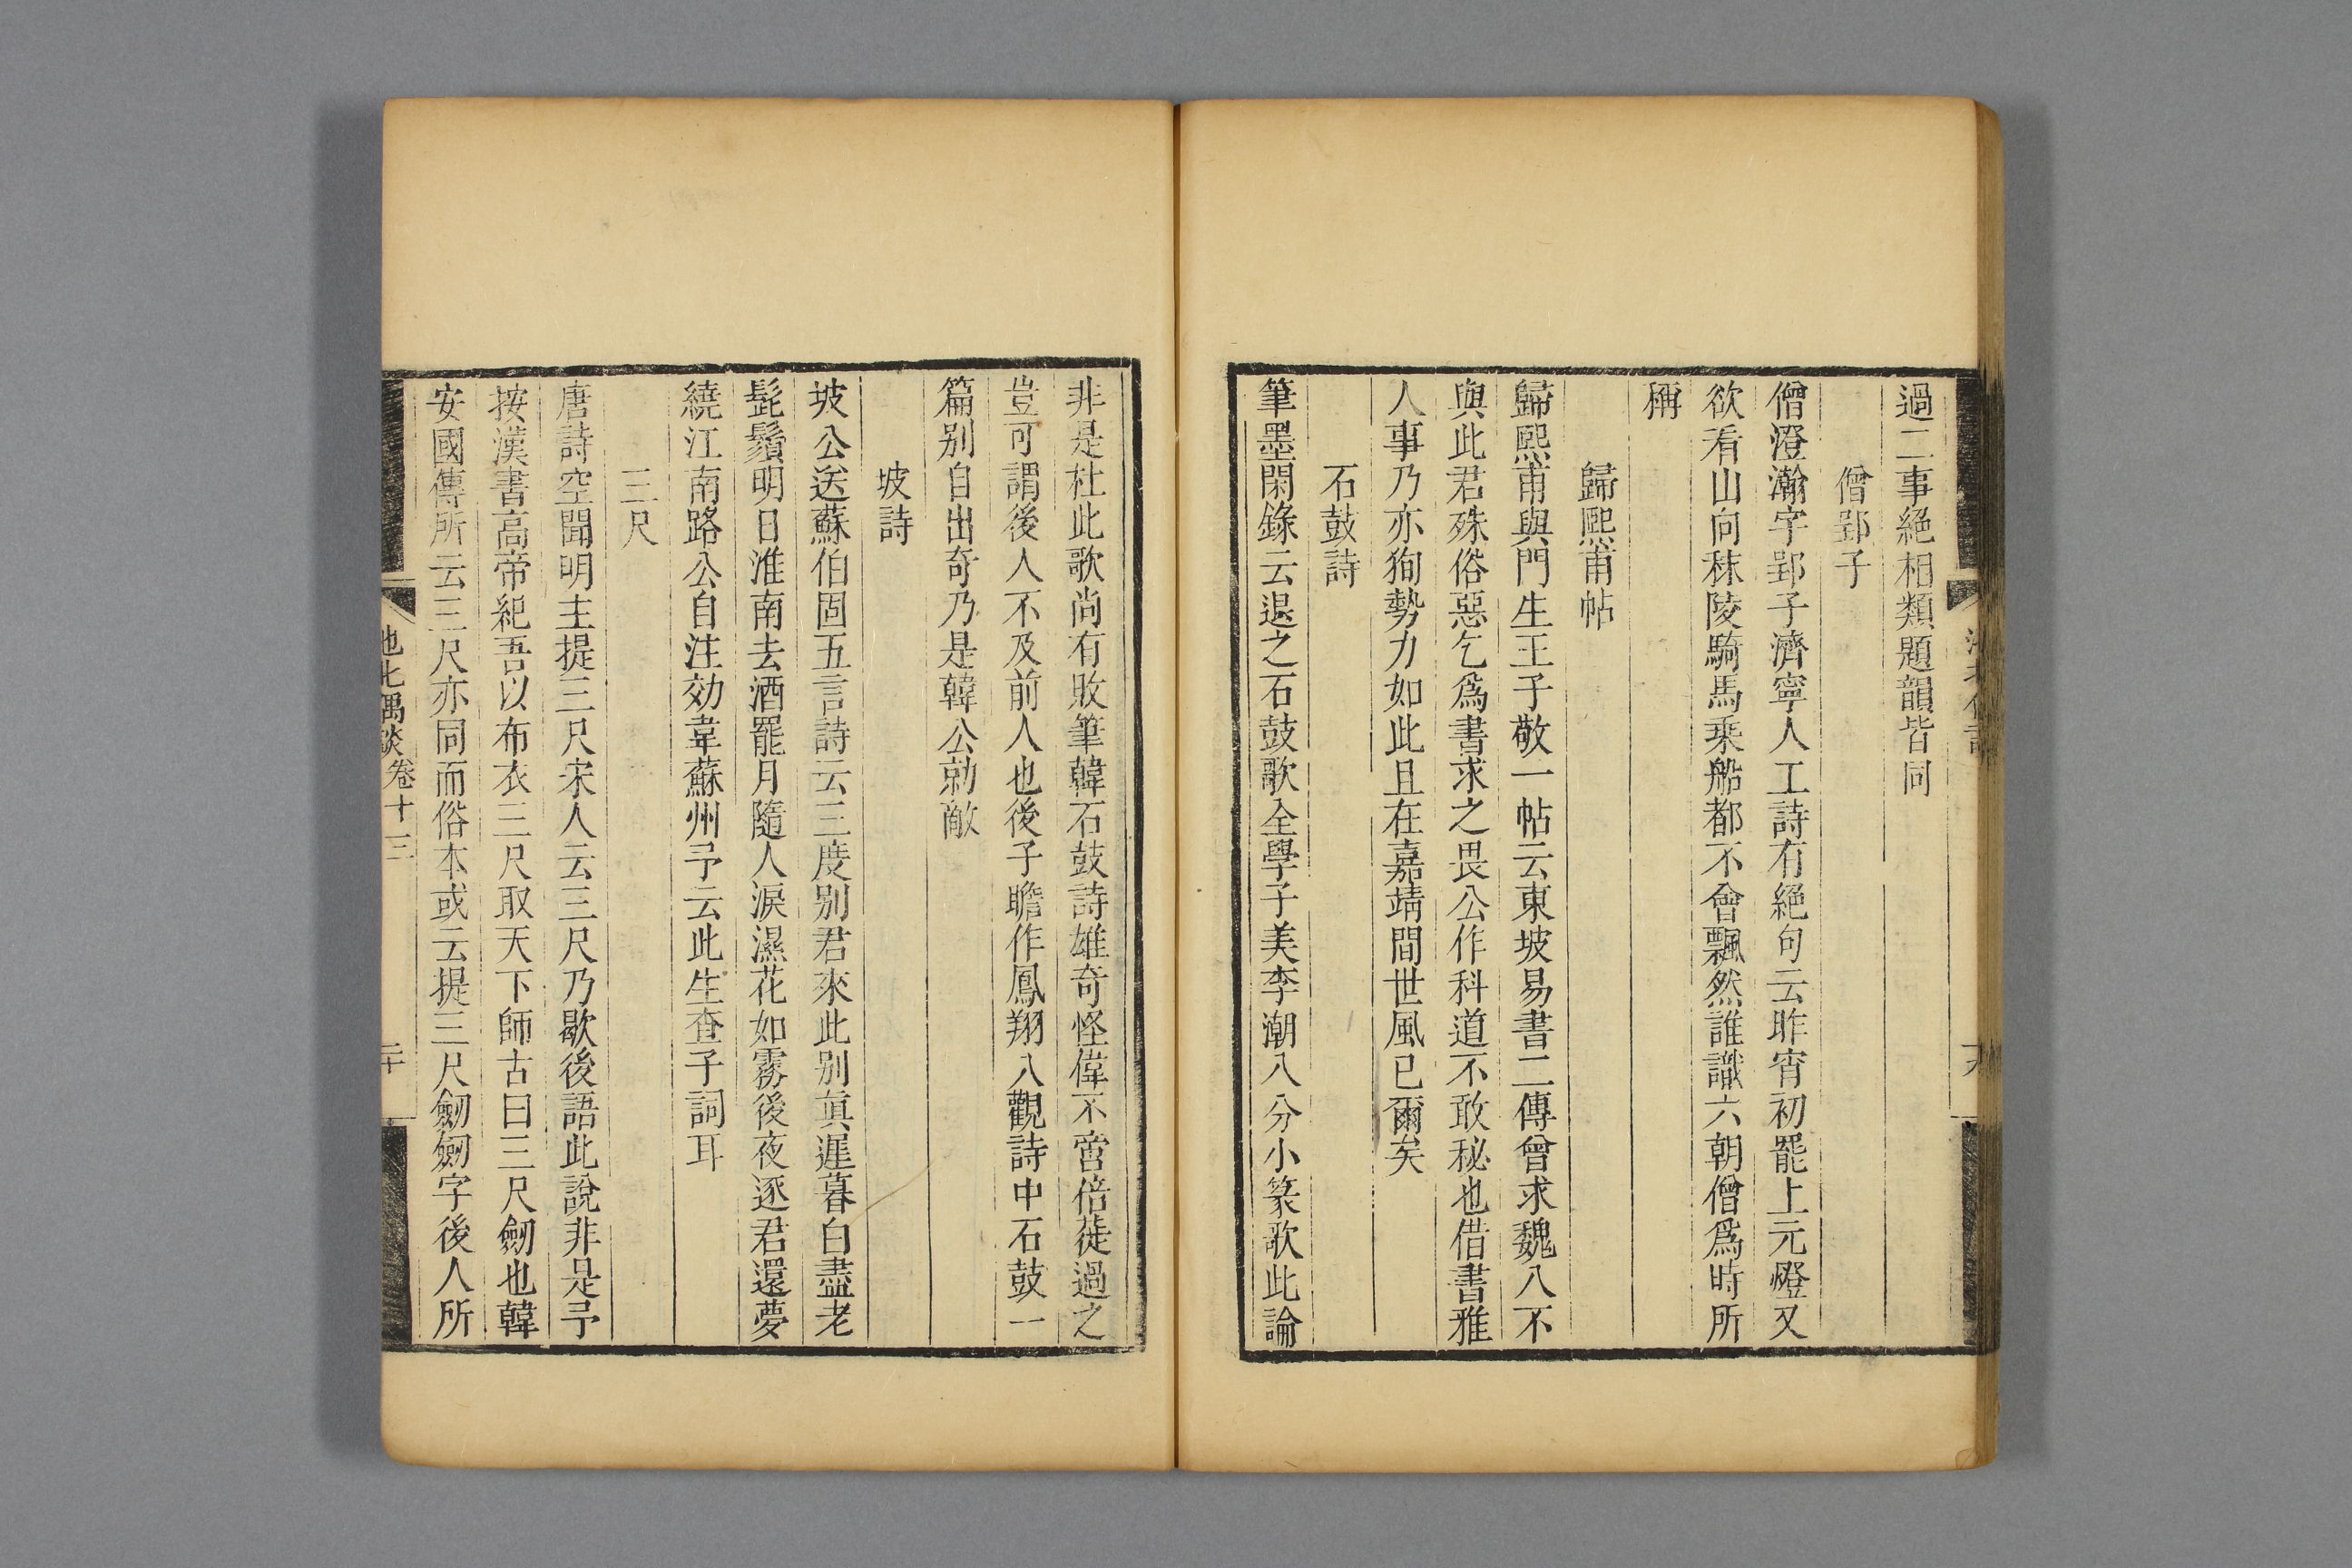 過二事絕相類題韻皆同
僧郢子
僧澄瀚字郢子濟寧人工詩有絕句云昨宵初罷上元燈又
欲看山向秣陵騎馬乘船都不會飄然誰識六朝僧爲時所
稱
歸熙甫帖
歸熙甫與門生王子敬一帖云東坡易書二傳曾求魏八不
與此君殊俗惡乞爲書求之畏公作科道不敢秘也借書雅
人事乃亦狥勢力如此且在嘉靖間世風已爾矣
石鼓詩
筆墨閑錄云退之石鼓歌全學子美李潮八分小篆歌此論
非是杜此歌尚有敗筆韓石鼓詩雄奇怪偉不啻倍蓰過之
豈可謂後人不及前人也後子瞻作鳳翔八觀詩中石鼓一
篇别自出奇乃是韓公勍敵
坡詩
坡公送蘇伯固五言詩云三度别君來此别眞遲暮白盡老
髭鬚明日淮南去酒罷月隨人淚濕花如霧後夜逐君還夢
繞江南路公自注効韋蘇州予云此生查子詞耳
三尺
唐詩空聞明主提三尺宋人云三尺乃歇後語此說非是予
按漢書高帝紀吾以布衣三尺取天下師古曰三尺劒也韓
安國傳所云三尺亦同而俗本或云提三尺劒劒字後人所
池北偶談 卷十三 二十